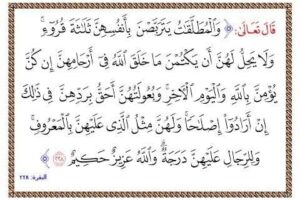 قال تعالى: ﴿ وَالْمُطَلَّقَاتُ يَتَرَبَّصْنَ بِأَنفُسِهِنَّ ثَلَاثَةَ قُرُوءٍ ۚ
وَلَا يَحِلُّ لَهُنَّ أَن يَكْتُمْنَ مَا خَلَقَ اللَّهُ فِي أَرْحَامِهِنَّ إِن كُنَّ
يُؤْمِنَّ بِاللَّهِ وَالْيَوْمِ الْآخِرِ ۚ وَبُعُولَتُهُنَّ أَحَقُّ بِرَدِّهِنَّ فِي ذَٰلِكَ
إِنْ أَرَادُوا إِصْلَاحًا ۚ وَلَهُنَّ مِثْلُ الَّذِي عَلَيْهِنَّ بِالْمَعْرُوفِ ۚ
وَلِلرِّجَالِ عَلَيْهِنَّ دَرَجَةٌ ۗ وَاللَّهُ عَزِيزٌ حَكِيمٌ ٢٢٨ ﴾
البقرة: ٢٢٨